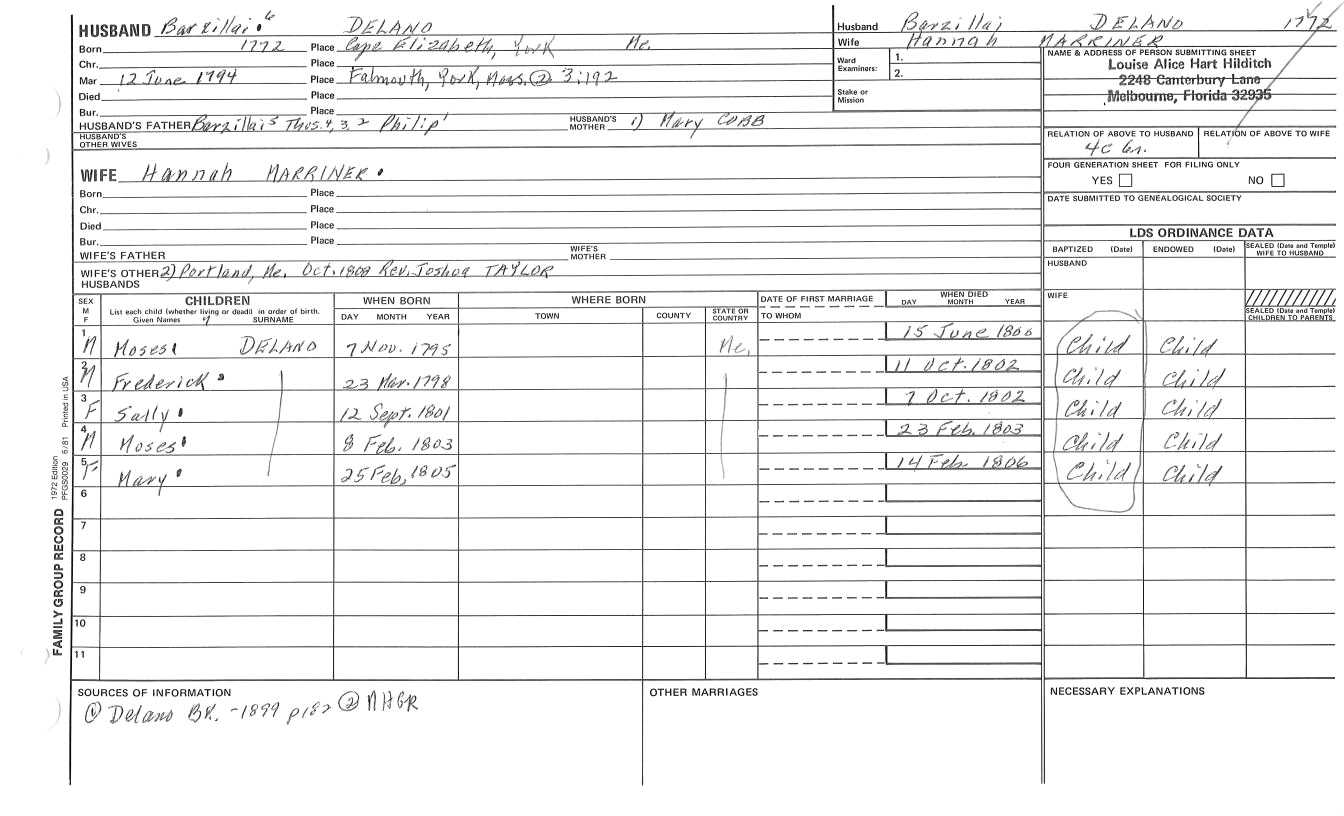 HUSBAND Barzillai 6 DELANO
Born 1772 Place Cape Elizabeth, York Me.
Chr. Place
Mar 12 June 1794 Place Falmouth, York, Mass. ② 3:192
Died Place
Bur. Place
HUSBAND'S FATHER Barzillai 5 Thos. 4, 3, 2 Philip 1 HUSBAND'S MOTHER 1) Mary COBB
HUSBAND'S OTHER WIVES
WIFE Hannah MARRINER
Born Place
Chr. Place
Died Place
Bur. Place
WIFE'S FATHER WIFE'S MOTHER
WIFE'S OTHER HUSBANDS 2) Portland, Me. Oct. 1808 Rev. Joshua TAYLOR
Husband Barzillai DELANO 1772
Wife Hannah MARRINER
Ward Examiners: 1.
2.
Stake or Mission
NAME & ADDRESS OF PERSON SUBMITTING SHEET
Louise Alice Hart Hilditch
2248 Canterbury Lane
Melbourne, Florida 32935
RELATION OF ABOVE TO HUSBAND RELATION OF ABOVE TO WIFE
4c
FOUR GENERATION SHEET FOR FILING ONLY
YES NO
DATE SUBMITTED TO GENEALOGICAL SOCIETY
LDS ORDINANCE DATA
BAPTIZED (Date) ENDOWED (Date) SEALED (Date and Temple) WIFE TO HUSBAND
HUSBAND
WIFE
SEALED (Date and Temple) CHILDREN TO PARENTS
SEX M F CHILDREN WHEN BORN WHERE BORN DATE OF FIRST MARRIAGE WHEN DIED
List each child (whether living or dead) in order of birth. Given Names 7 SURNAME DAY MONTH YEAR TOWN COUNTY STATE OR COUNTRY TO WHOM DAY MONTH YEAR
1 M Moses DELANO 7 Nov. 1795 Me. 15 June 1800 Child Child
2 M Frederick 23 Mar. 1798 11 Oct. 1802 Child Child
3 F Sally 12 Sept. 1801 7 Oct. 1802 Child Child
4 M Moses 8 Feb. 1803 23 Feb. 1803 Child Child
5 F Mary 25 Feb, 1805 14 Feb. 1806 Child Child
6
7
8
9
10
11
FAMILY GROUP RECORD 1972 Edition PFGS0029 6/81 Printed in USA
SOURCES OF INFORMATION
① Delano BK. - 1899 p182 ② NHGR
OTHER MARRIAGES
NECESSARY EXPLANATIONS